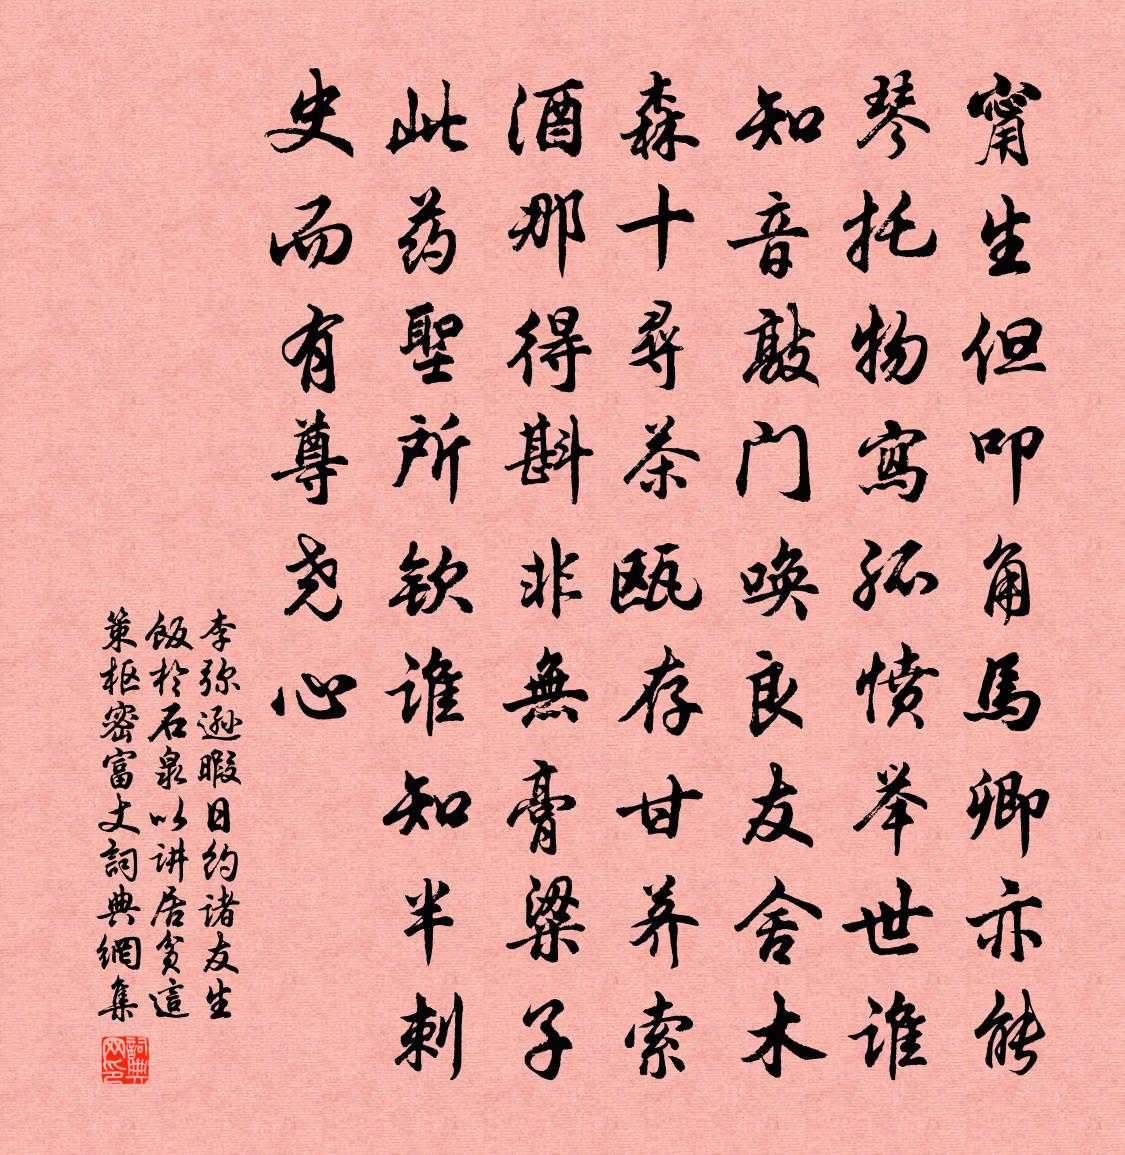 甯生但叩角馬卿亦能
琴托物寫孤愤举世谁
知音敲门唤良友舍木
森十尋茶瓯存甘养索
酒那得斟非無膏粱子
此药聖所欽谁知半刺
史而有尊尧心
李弥逊暇日约诸友生
飯於石泉以讲居貧這
策枢密富丈詞典網集
詞典网印